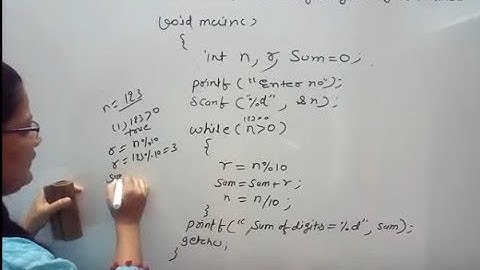 void main()
{
int n, r, Sum=0;
printf ("Enter no");
Scanf ("%d", &n);
while (n>0)
123>0
{
r = n%10
sum = sum + r;
n = n/10;
}
printf(", Sum of digits = %d", sum);
getch();
}
n = 123
(1) 123 > 0
true
r = n%10
r = 123%10 = 3